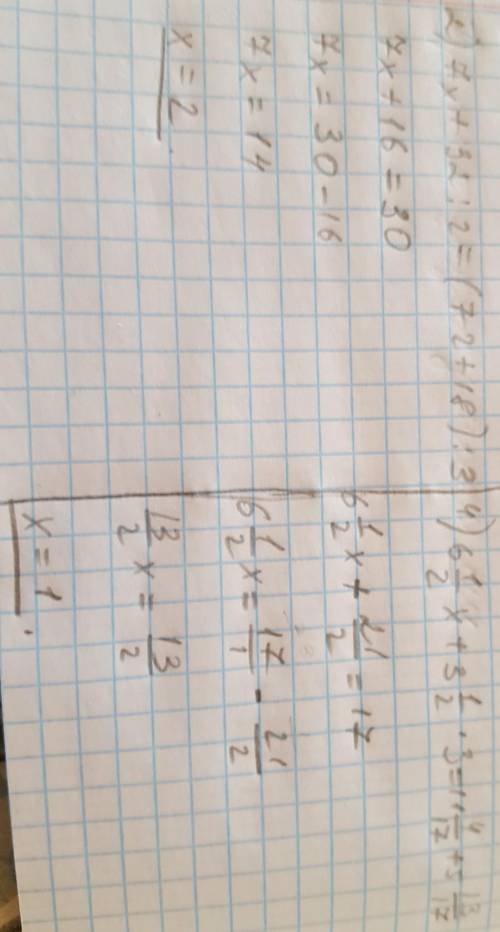 2) 7x + 32 : 2 = (72 + 18) : 3
7x + 16 = 30
7x = 30 - 16
7x = 14
x = 2.
4) 6 1/2 x + 3 1/2 · 3 = 11 4/17 + 5 13/17
6 1/2 x + 21/2 = 17
6 1/2 x = 17/1 - 21/2
13/2 x = 13/2
x = 1.